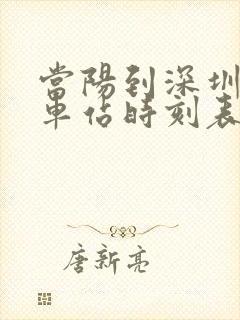 當陽到深圳
車佔時刻表
唐新亮